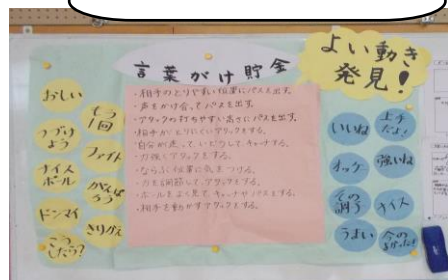 言葉がけ貯金
よい動き
発見！
おしい
もう
1回
つづけ
よう
ファイト
ナイス
ボール
がんば
ろう
ドンマイ
きりかえ
こう
したら？
・相手のとりやすい位置にパスを出す。
・声をかけ合ってパスを出す。
・アタックの打ちやすい高さにパスを出す。
・相手がとりにくいアタックをする。
・力強くアタックをする。
・ならぶ位置に気をつける。
・力を調節して、アタックをする。
・ボールをよく見て、キャッチやパスをする。
・相手を動かすアタックをする。
いいね
上手
だよ！
オッケー
強いね
その
調子
ナイス
うまい
今の
よかったよ